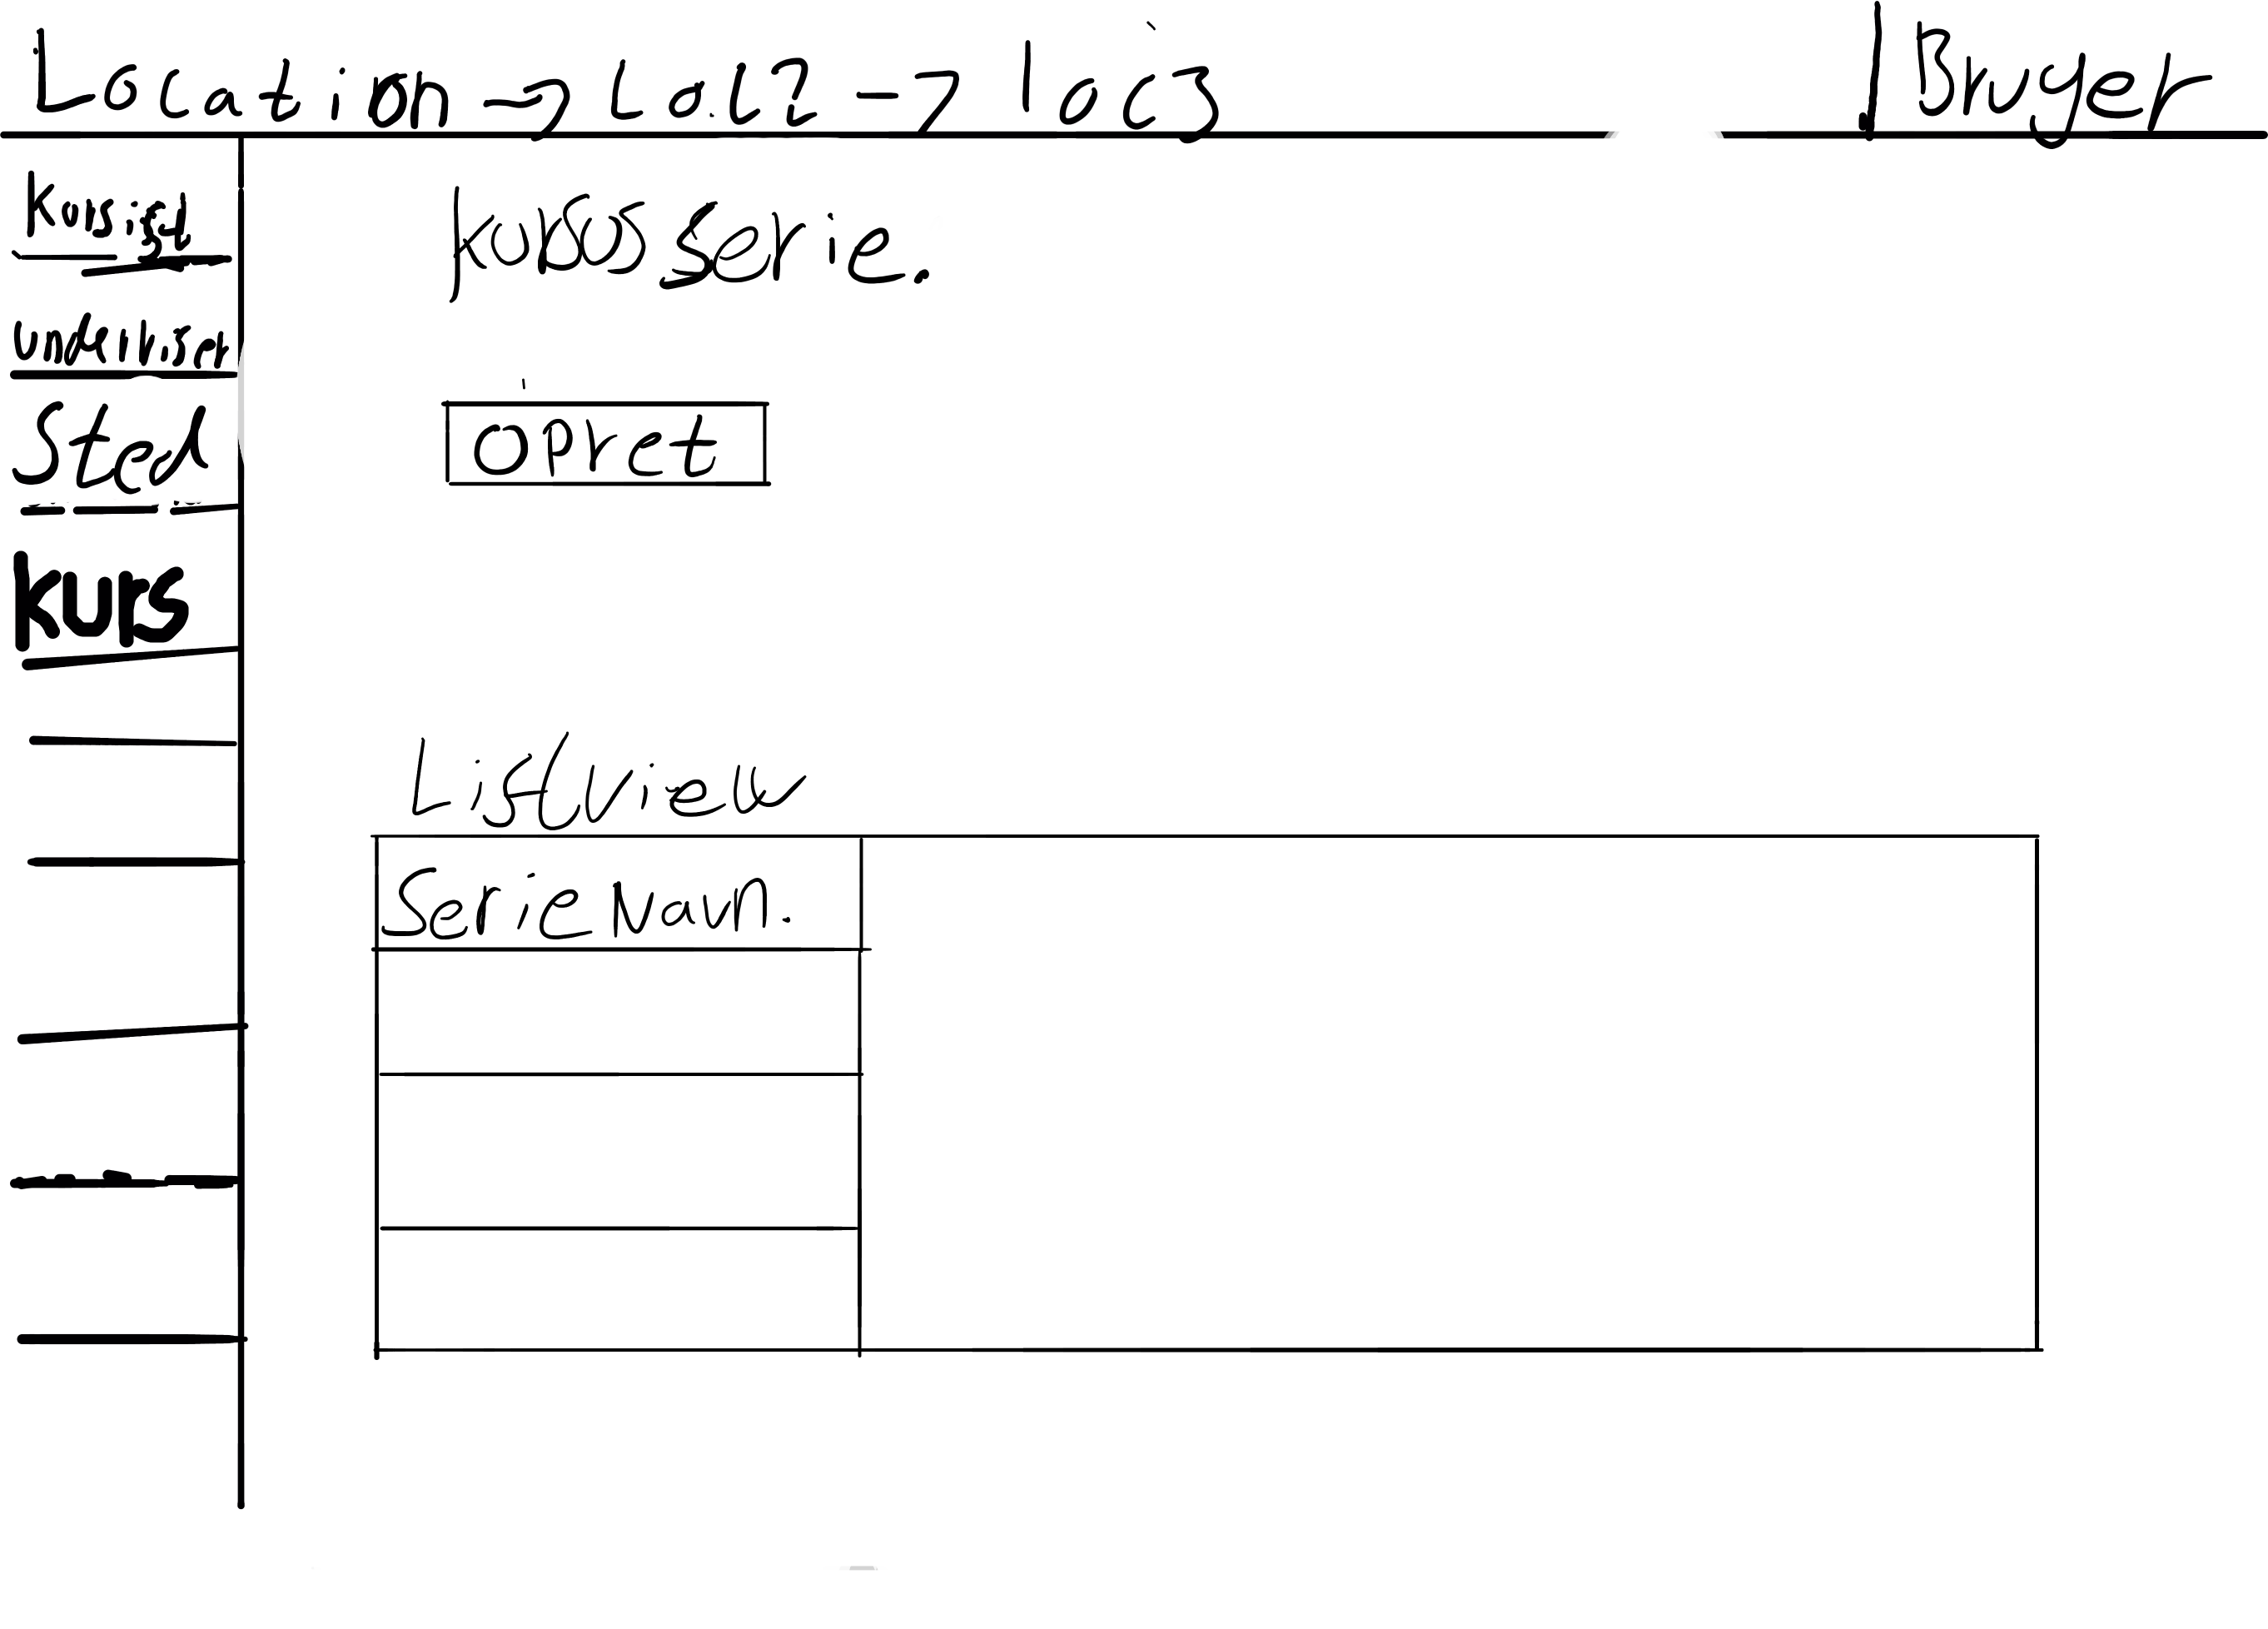 Location -> Lol2 -> loc3
Bruger
Kursist
Sted
kurs
kursus serie.
opret
Listview
Serie navn.